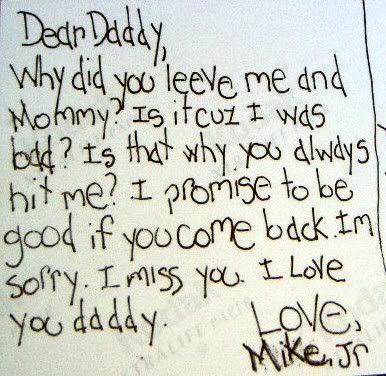 Dear Daddy,
Why did you leeve me and
Mommy? Is it cuz I was
bad? Is that why you always
hit me? I promise to be
good if you come back. Im
sorry. I miss you. I Love
you daddy.
Love,
Mike, Jr